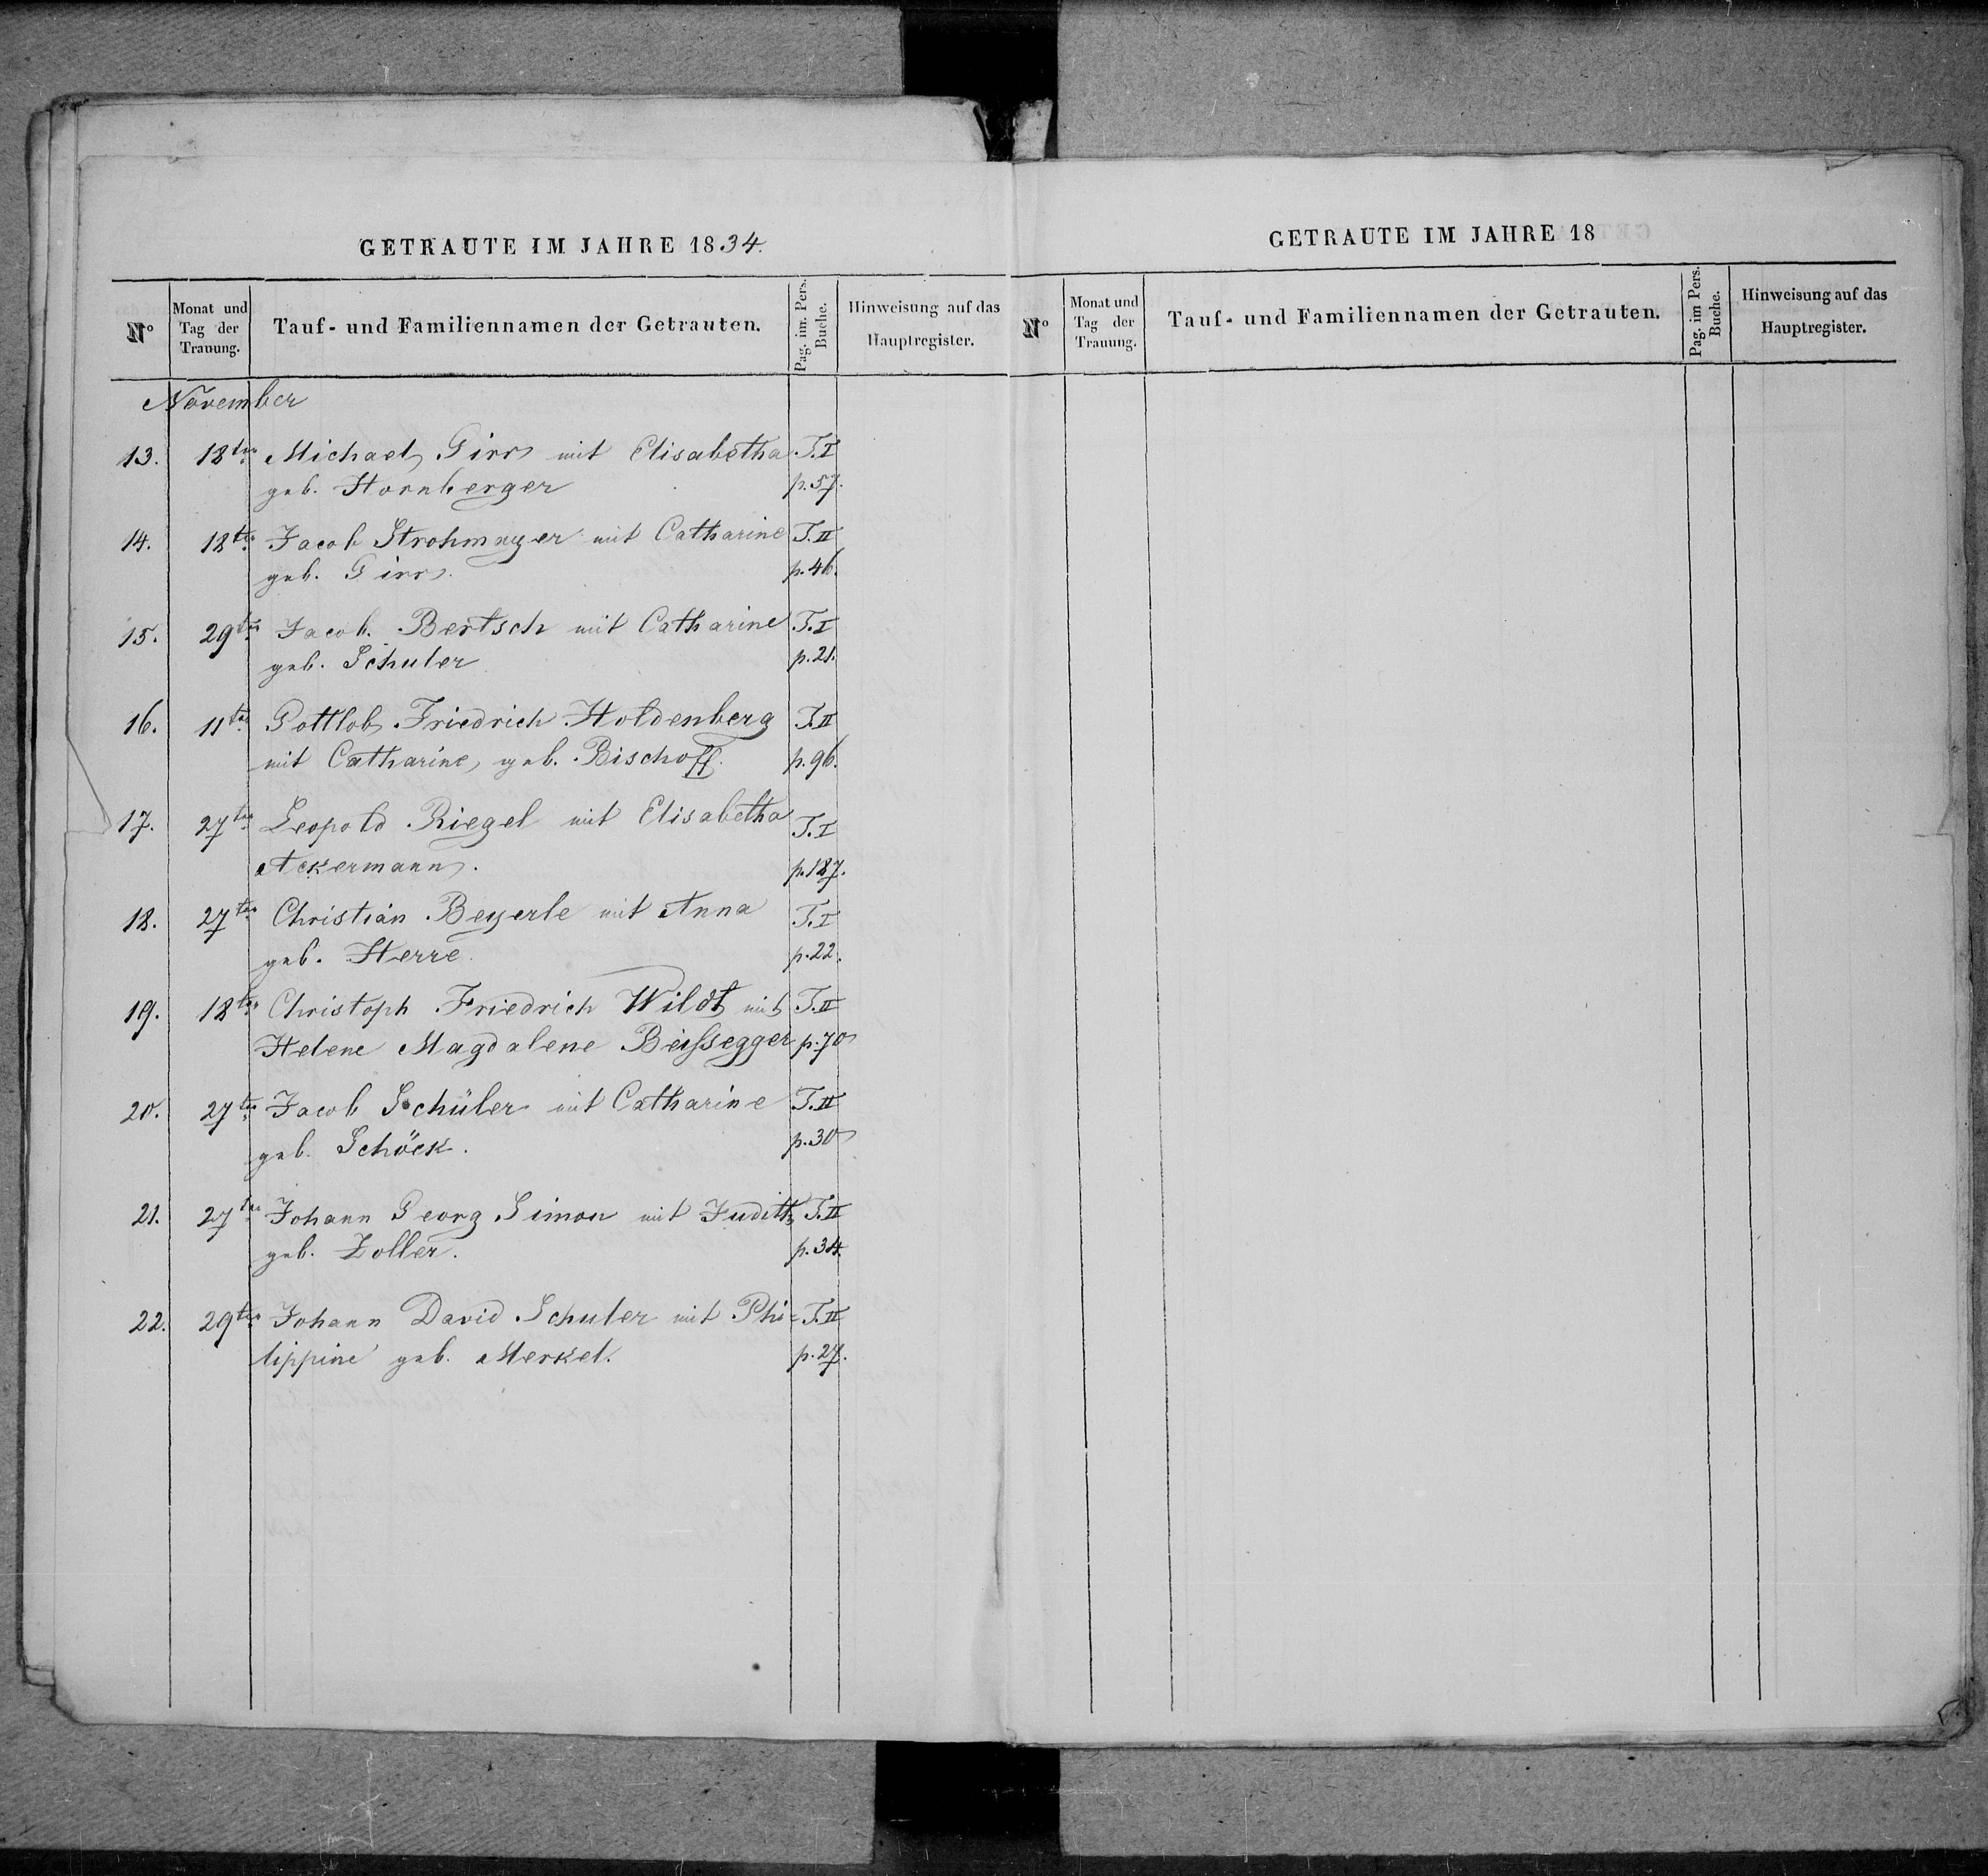 GETRAUTE IM JAHRE 1834.
N° Monat und Tag der Trauung. Tauf- und Familiennamen der Getrauten. Pag. im. Pers. Buche. Hinweisung auf das Hauptregister.
November
13. 18ten Michael Girr mit Elisabetha T. I
geb. Hornberger p. 57.
14. 18ten Jacob Strohmayer mit Catharine T. II
geb. Girr. p. 46.
15. 29ten Jacob Bertsch mit Catharine T. I
geb. Schuler p. 21.
16. 11ten Gottlob Friedrich Holdenberg T. II
mit Catharine, geb. Bischoff. p. 96.
17. 27ten Leopold Riegel mit Elisabetha T. I
Ackermann. p. 187.
18. 27ten Christian Beyerle mit Anna T. I
geb. Herre. p. 22.
19. 18ten Christoph Friedrich Wildt mit T. II
Helene Magdalene Beißegger p. 70
20. 27ten Jacob Schüler mit Catharine T. II
geb. Schöck. p. 30
21. 27ten Johann Georg Simon mit Judith T. II
geb. Zoller. p. 34.
22. 29ten Johann David Schuler mit Phi= T. II
lippine geb. Merkel. p. 27.
GETRAUTE IM JAHRE 18
N° Monat und Tag der Trauung. Tauf- und Familiennamen der Getrauten. Pag. im Pers. Buche. Hinweisung auf das Hauptregister.